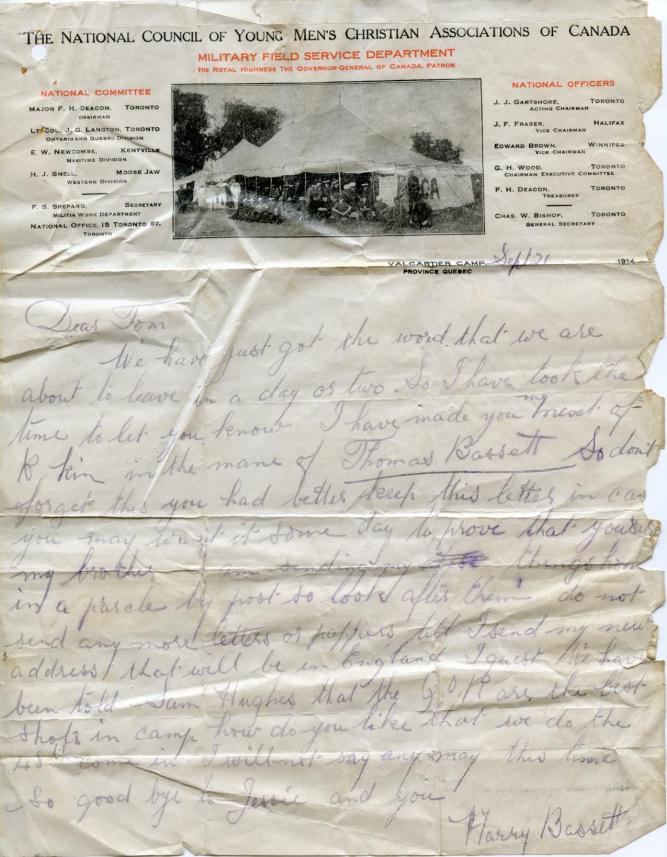 THE NATIONAL COUNCIL OF YOUNG MEN'S CHRISTIAN ASSOCIATIONS OF CANADA
MILITARY FIELD SERVICE DEPARTMENT
HIS ROYAL HIGHNESS THE GOVERNOR-GENERAL OF CANADA, PATRON
NATIONAL COMMITTEE
MAJOR F. H. DEACON, TORONTO
CHAIRMAN
LT-COL. J. G. LANGTON, TORONTO
ONTARIO AND QUEBEC DIVISION
E. W. NEWCOMBE, KENTVILLE
MARITIME DIVISION
H. J. SNELL, MOOSE JAW
WESTERN DIVISION
F. S. SHEPARD, SECRETARY
MILITIA WORK DEPARTMENT
NATIONAL OFFICE, 15 TORONTO ST.
TORONTO
CA
NATIONAL OFFICERS
J. J. GARTSHORE, TORONTO
ACTING CHAIRMAN
J. F. FRASER, HALIFAX
VICE CHAIRMAN
EDWARD BROWN, WINNIPEG
VICE CHAIRMAN
G. H. WOOD, TORONTO
CHAIRMAN EXECUTIVE COMMITTEE
F. H. DEACON, TORONTO
TREASURER
CHAS. W. BISHOP, TORONTO
GENERAL SECRETARY
VALCARTIER CAMP, Sept 21 1914
PROVINCE QUEBEC
Dear Tom
We have just got the word that we are
about to leave in a day or two. So I have took the
time to let you know I have made you my nexst of
K kin in the mane of Thomas Bassett So dont
forget this you had better keep this letter in cas
you may want it some day to prove that
my brother am sending my things
in a parcle by post so look after them do not
send any more letters or pappers till I send my new
address that will be in England I guest We have
been told Sam Hughes that the Q.O.R are the best
shots in camp how do you like that we do the
48th come in I will not say any may this time
So good bye to Jessie and you
Harry Bassett